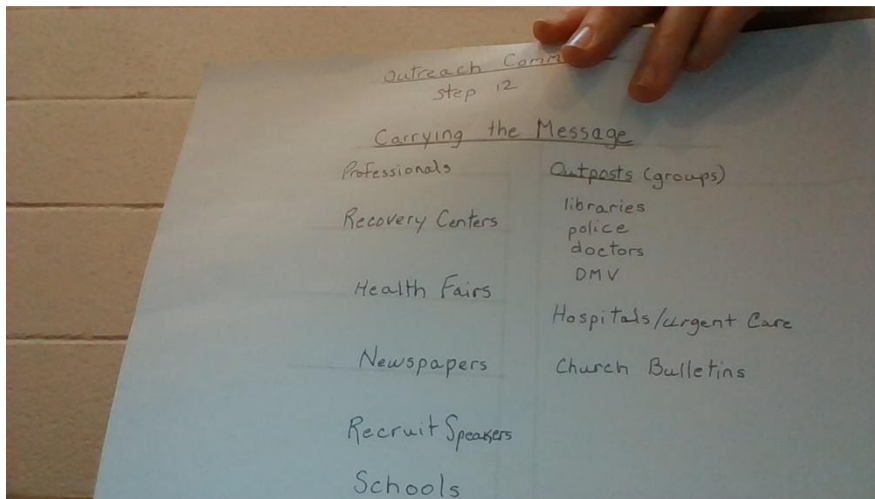 Outreach Comm
Step 12
Carrying the Message
Professionals
Recovery Centers
Health Fairs
Newspapers
Recruit Speakers
Schools
Outposts (groups)
libraries
police
doctors
DMV
Hospitals/urgent Care
Church Bulletins